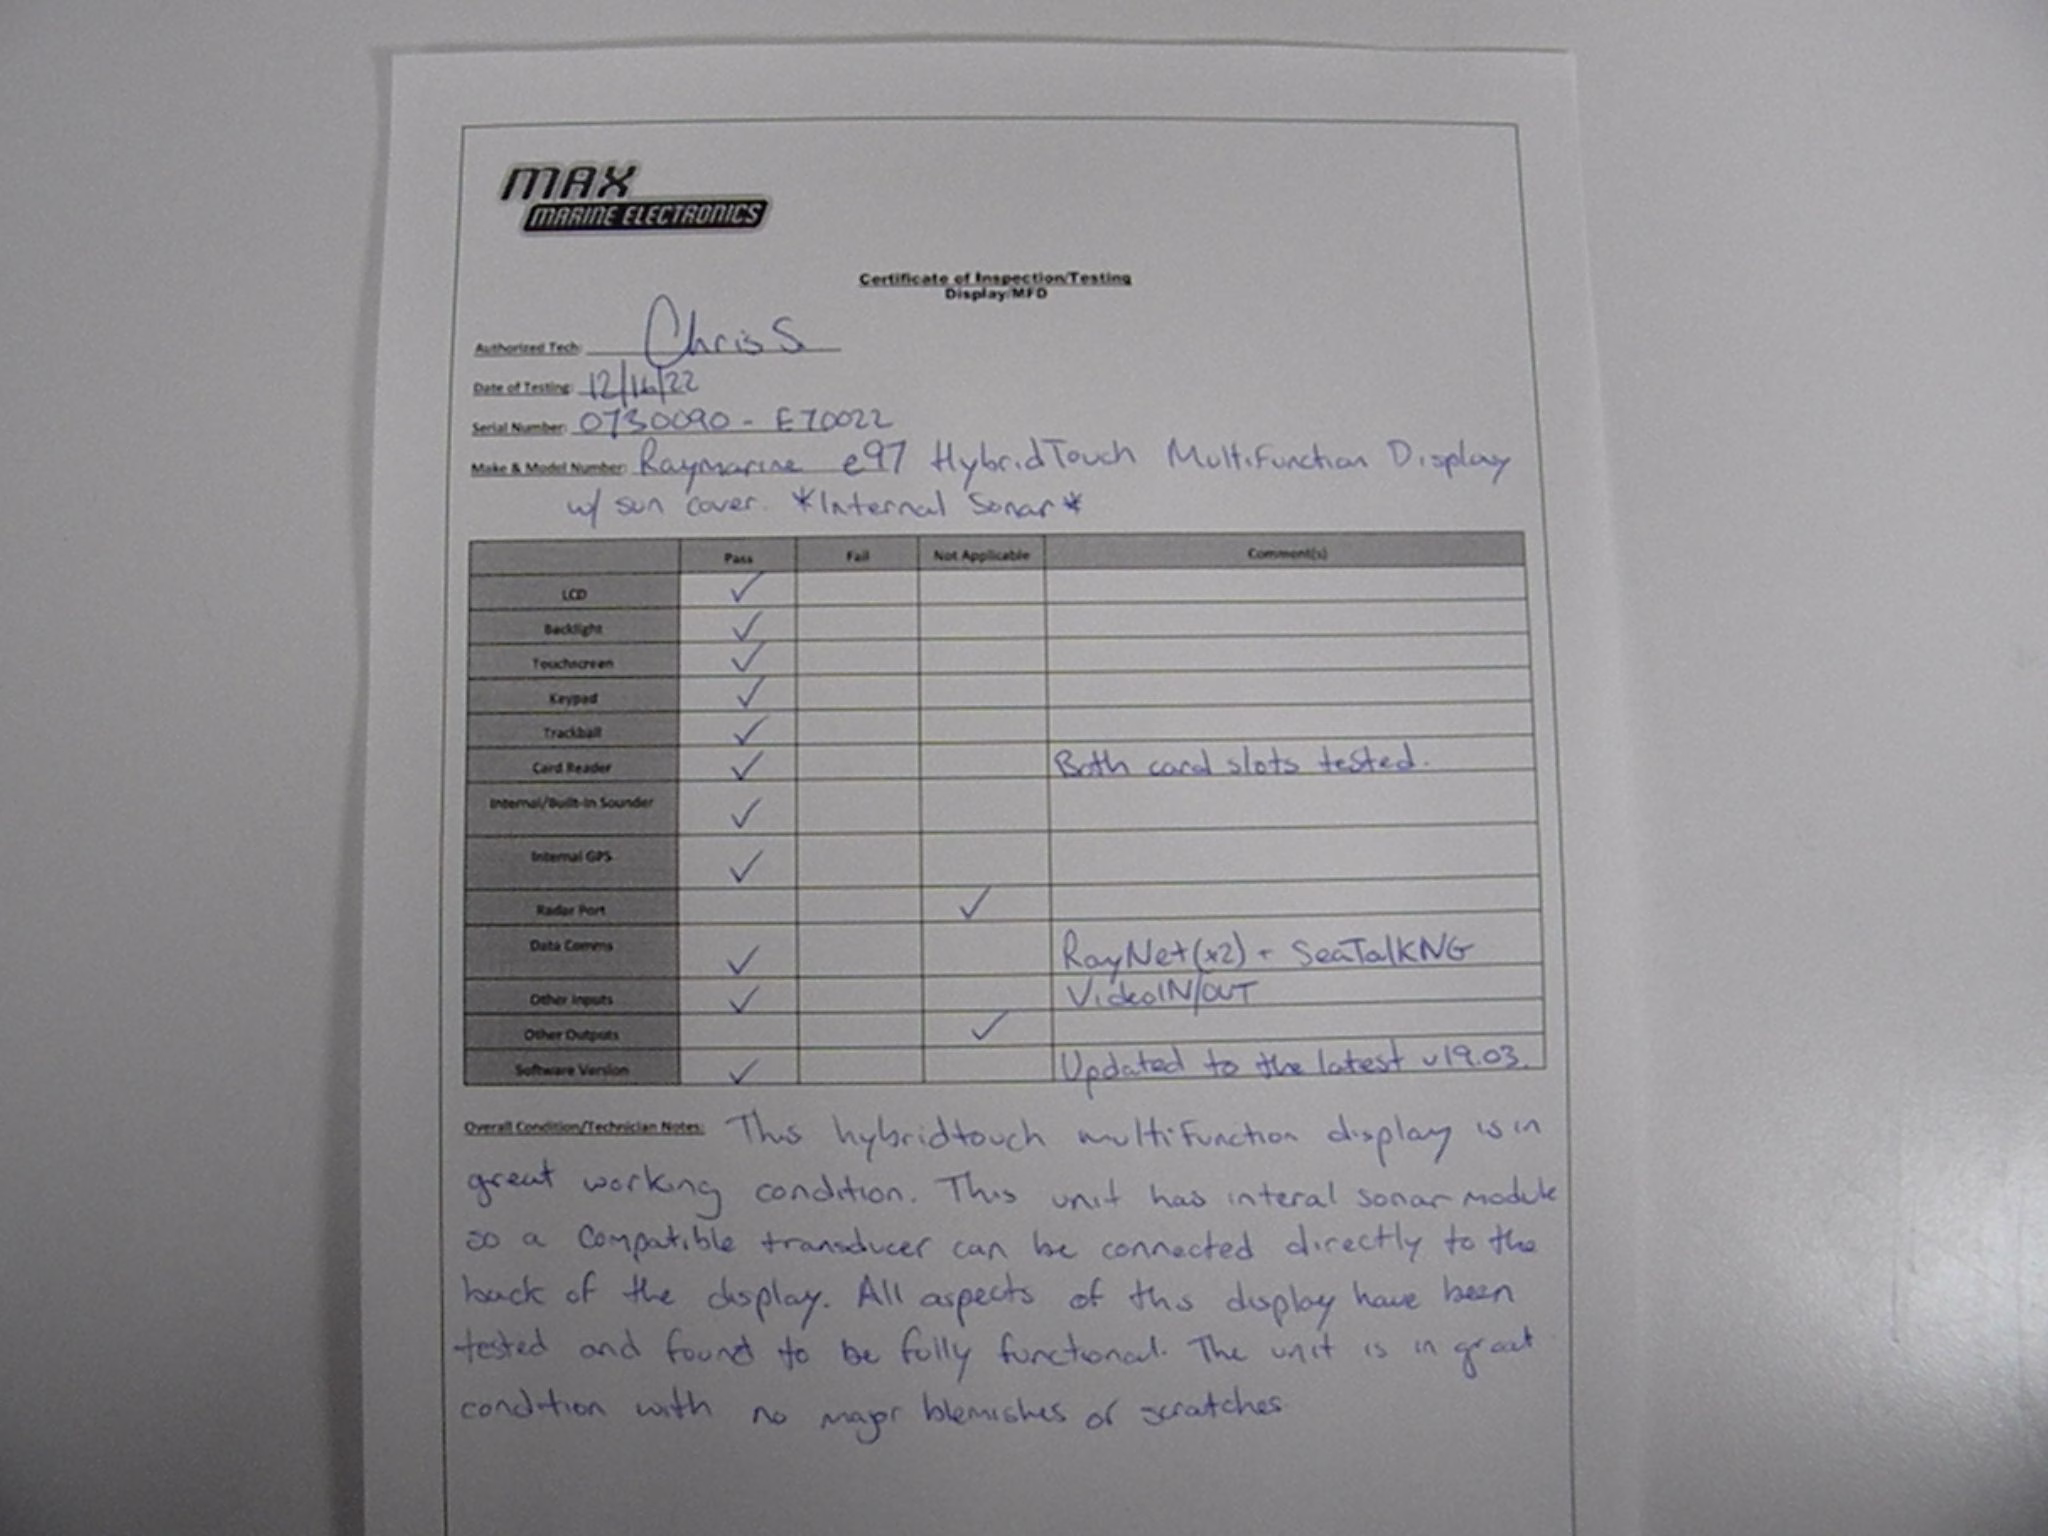 MAX
MARINE ELECTRONICS
Certificate of Inspection/Testing
Display/MFD
Authorized Tech: Chris S.
Date of Testing: 12/16/22
Serial Number: 0730090 - E70022
Make & Model Number: Raymarine e97 HybridTouch Multifunction Display
w/ sun cover. *Internal Sonar*
Pass Fail Not Applicable Comment(s)
LCD ✓
Backlight ✓
Touchscreen ✓
Keypad ✓
Trackball ✓
Card Reader ✓ Both card slots tested.
Internal/Built-In Sounder ✓
Internal GPS ✓
Radar Port ✓
Data Comms ✓ RayNet(x2) + SeaTalkNG
Other Inputs ✓ VideoIN/OUT
Other Outputs ✓
Software Version ✓ Updated to the latest v19.03.
Overall Condition/Technician Notes: This hybridtouch multifunction display is in
great working condition. This unit has interal sonar module
so a compatible transducer can be connected directly to the
back of the display. All aspects of this display have been
tested and found to be fully functional. The unit is in great
condition with no major blemishes or scratches